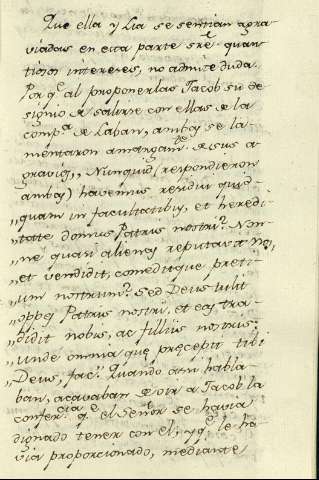 Que ella y Lia se sentian agra
viadas en esta parte sre. quan
tiosos intereses, no admite duda.
Por qe. al proponerlas Jacob su de
signio de salirse con ellas de la
compa. de Laban, ambas se la
mentaron amargamte. de sus a
gravios,, Nunquid (respondieron
ambas) havemus residui quid-
,,quam in facultatibus, et heredi
,,tate domus Patris nostri? Non-
,,ne quasi alienas reputavit nos,
,,et vendidit, comeditque preti-
,,um nostrum? Sed Deus tulit
,,opes Patris nostri, et eas tra-
,,didit nobis, ac filiis nostris:
,,unde omnia quę pręcepit tibi
,,Deus, fac. Quando asi habla
ban, acavaban de oir a Jacob la
conferencia qe. el Señor se havia
dignado tener con el; y qe. le ha
via proporcionado, mediante